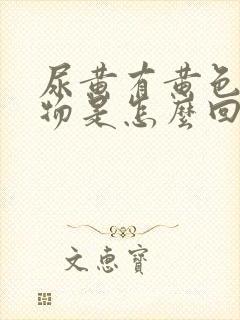 尿黄有黄色
物是怎麼回
文惠寶